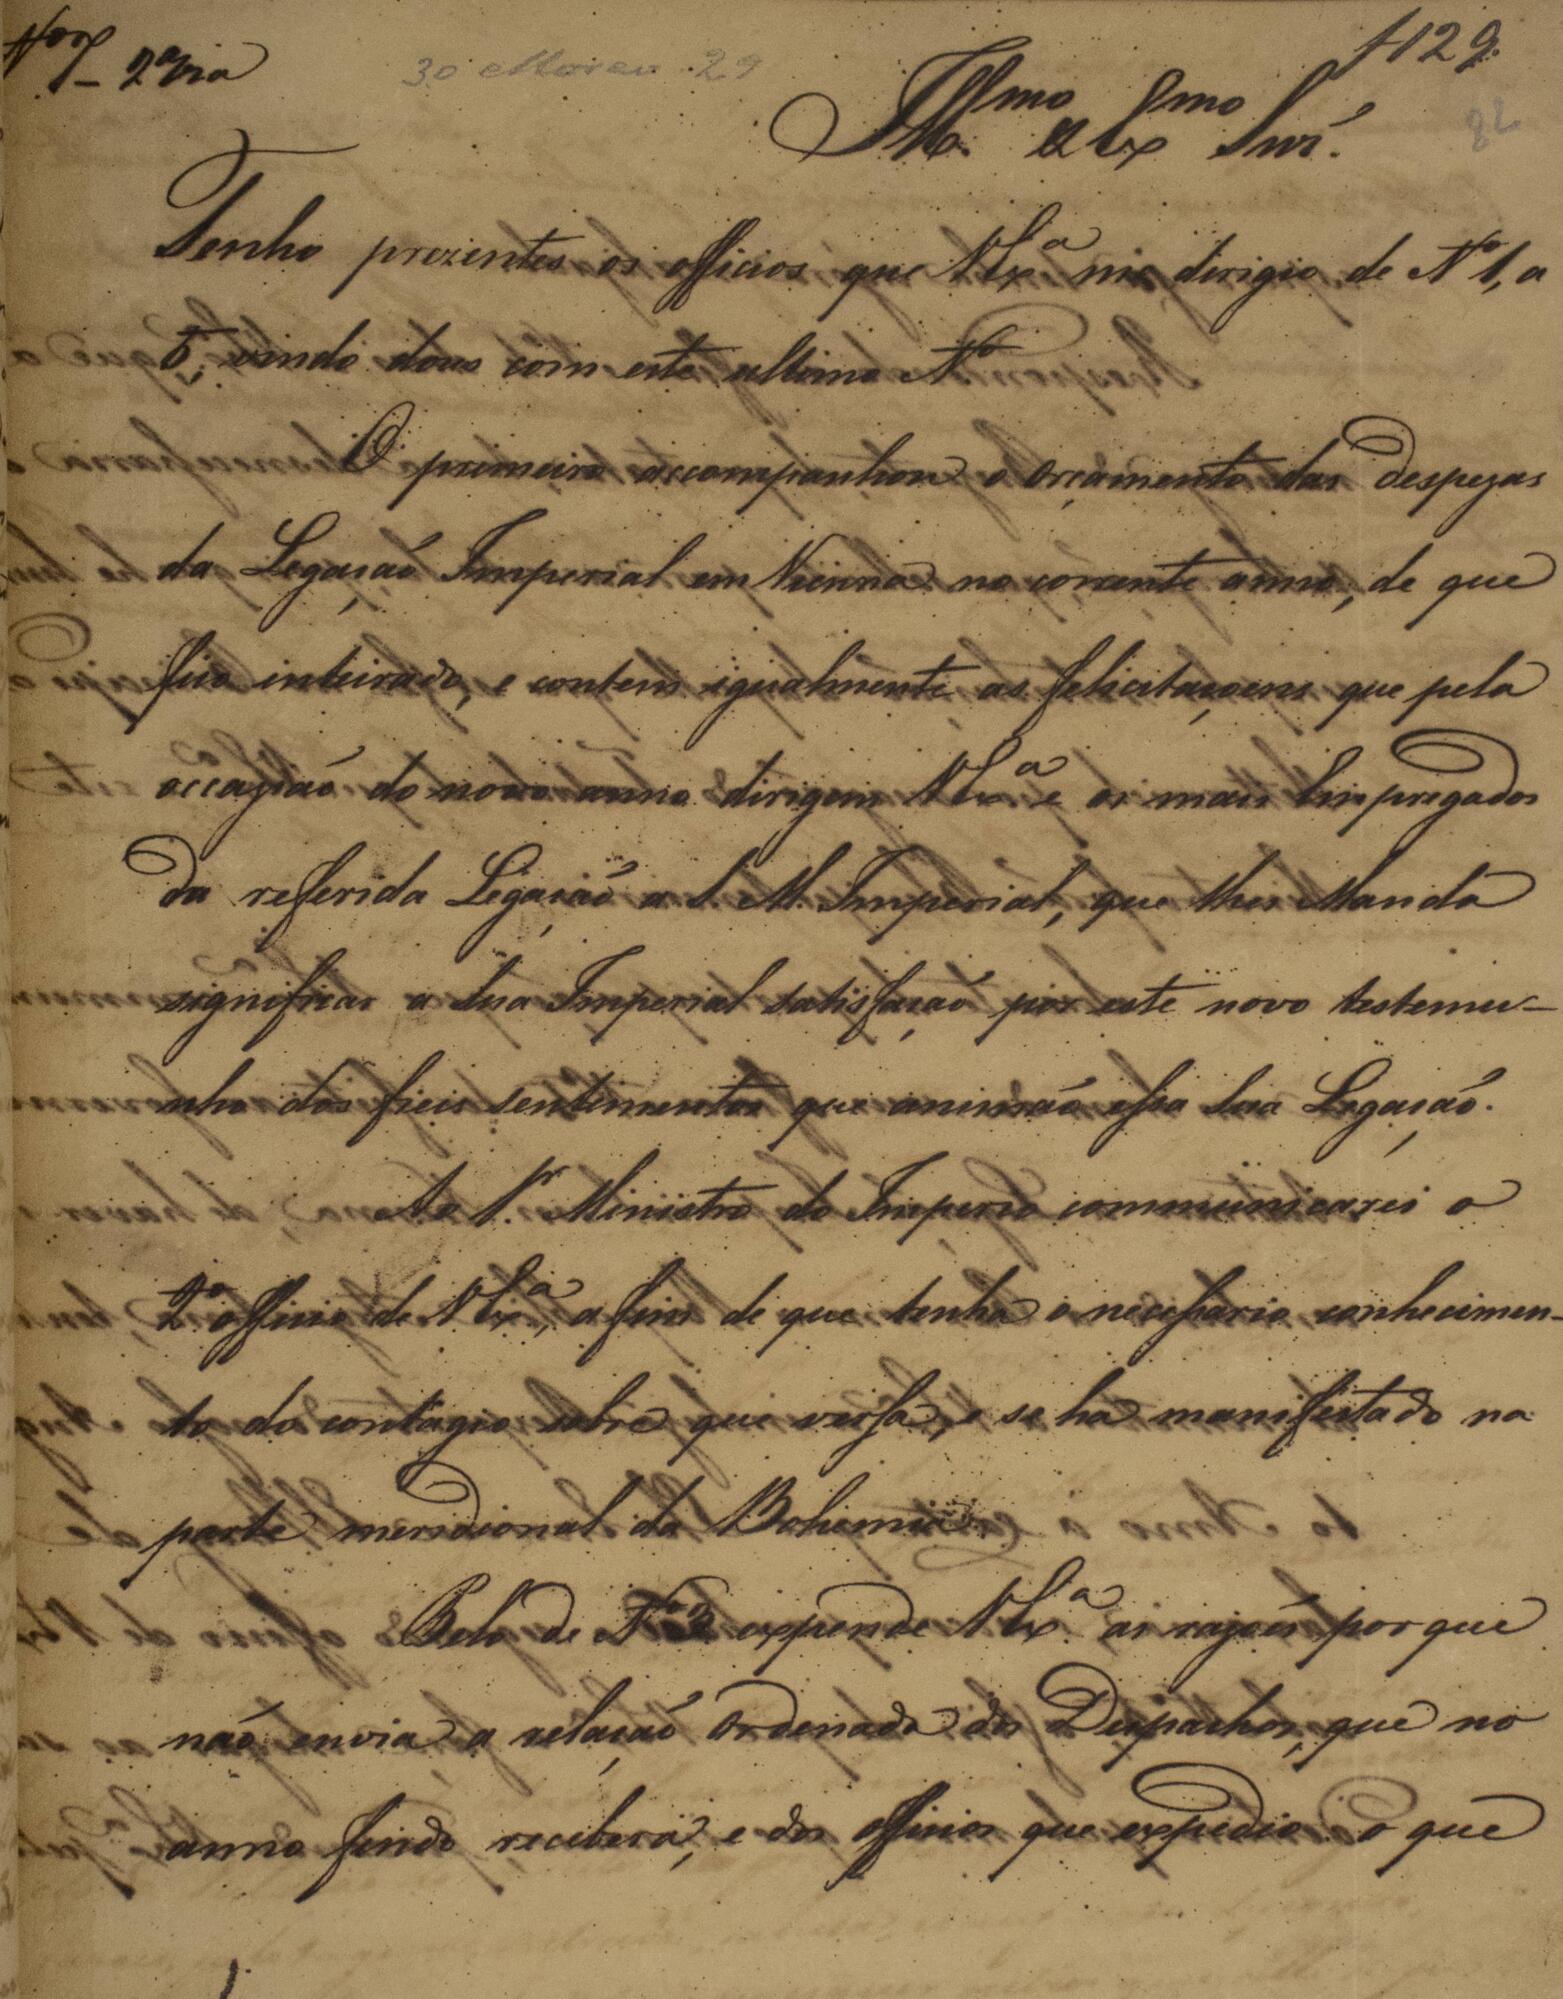 Nº 7 - 2ª via
30 Março 29
Illmo e Exmo Snr.
Tenho prezentes os officios que VExª me dirigio de Nº 1, a
5, vindo dous com este ultimo Nº
O primeiro accompanhou o orçamento das despezas
da Legação Imperial em Vienna no corrente anno, de que
fico inteirado, e contem igualmente as felicitaçoens que pela
occazião do novo anno dirigem VExª e os mais Empregados
da referida Legação a S. M. Imperial, que lhes Manda
significar a Sua Imperial satisfação por este novo testemu-
nho dos fieis sentimentos que animão essa Sua Legação.
Ao Sr. Ministro do Imperio communicarei o
2º officio de VExª, a fim de que tenha o necessario conhecimen-
to do contagio sobre que versa, e se ha manifestado na
parte meridional da Bohemia.
Pelo de Nº 3 expende VExª as razões porque
não envia a relação ordenada dos Despachos, que no
anno findo recebera, e dos officios que expedio: o que